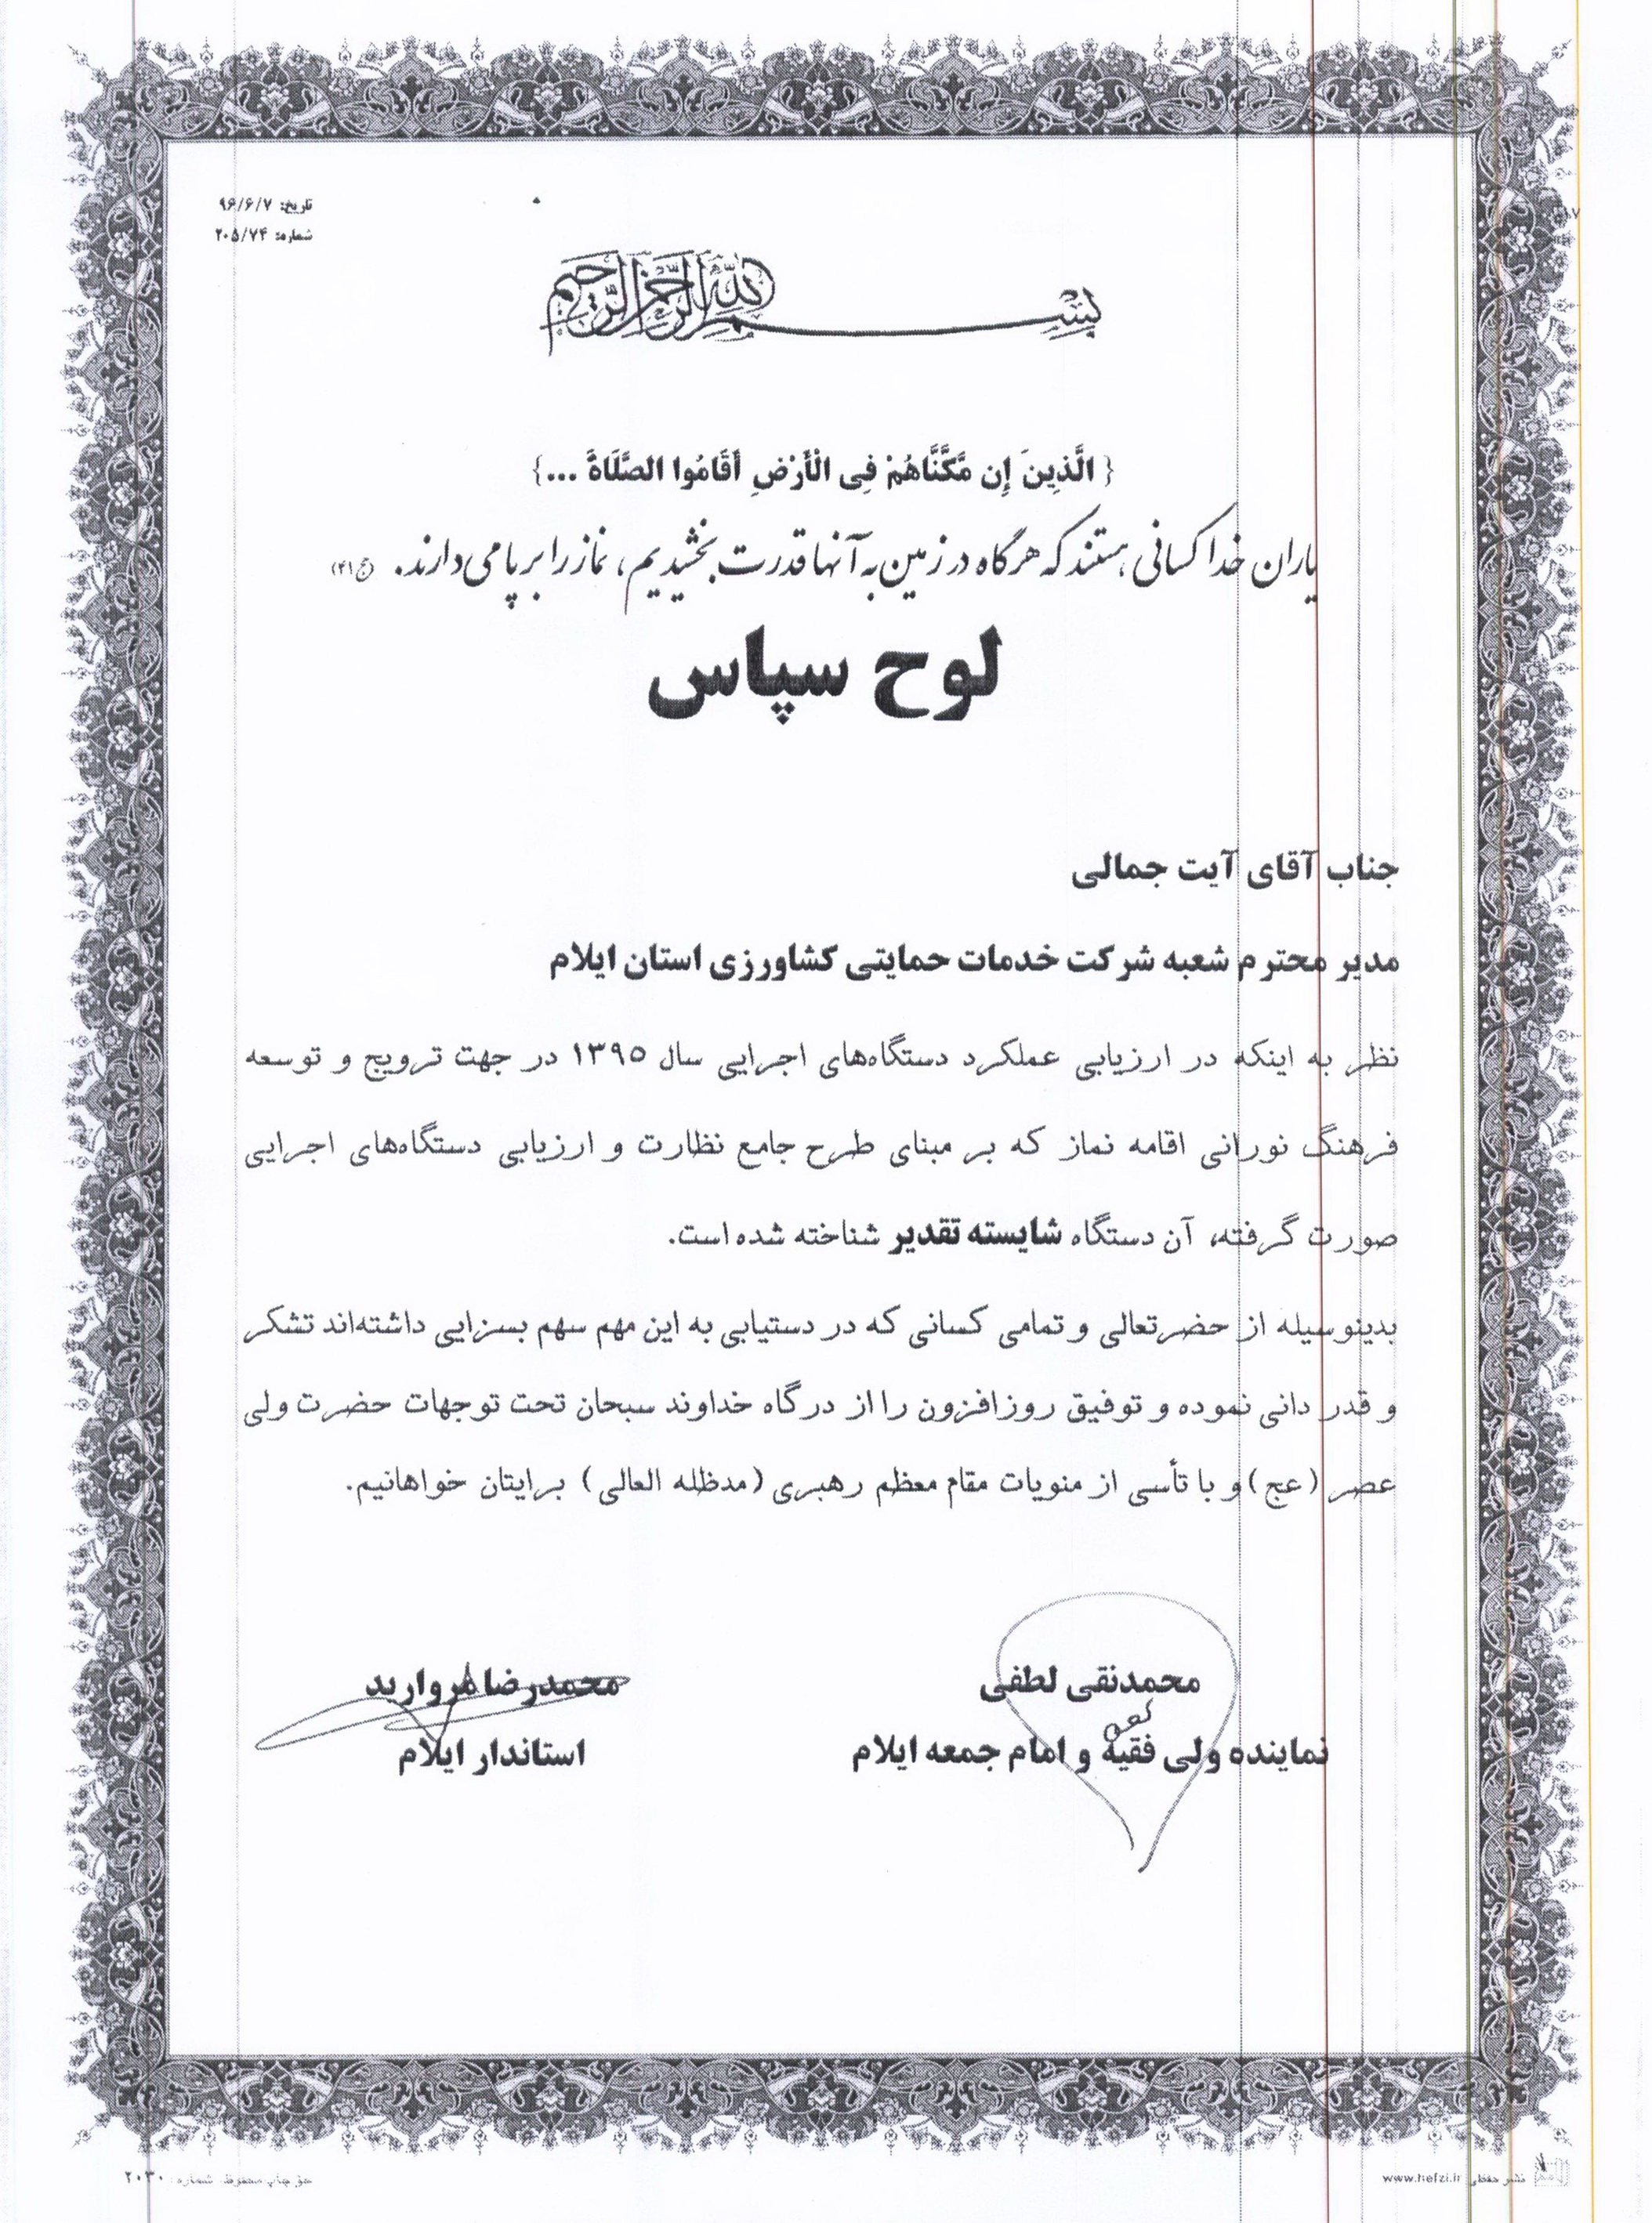 تاریخ: ۹۶/۶/۷
شماره: ۲۰۵/۷۴
بسم الله الرحمن الرحیم
{ الَّذِینَ إِن مَّکَّنَّاهُمْ فِی الْأَرْضِ أَقَامُوا الصَّلَاةَ ...}
یاران خدا کسانی هستند که هرگاه در زمین به آنها قدرت بخشیدیم، نماز را برپا می دارند. (حج ۴۱)
لوح سپاس
جناب آقای آیت جمالی
مدیر محترم شعبه شرکت خدمات حمایتی کشاورزی استان ایلام
نظر به اینکه در ارزیابی عملکرد دستگاه‌های اجرایی سال ۱۳۹۵ در جهت ترویج و توسعه
فرهنگ نورانی اقامه نماز که بر مبنای طرح جامع نظارت و ارزیابی دستگاه‌های اجرایی
صورت گرفته، آن دستگاه شایسته تقدیر شناخته شده است.
بدینوسیله از حضرتعالی و تمامی کسانی که در دستیابی به این مهم سهم بسزایی داشته‌اند تشکر
و قدر دانی نموده و توفیق روزافزون را از درگاه خداوند سبحان تحت توجهات حضرت ولی
عصر (عج) و با تأسی از منویات مقام معظم رهبری (مدظله العالی) برایتان خواهانیم.
محمدنقی لطفی
نماینده ولی فقیه و امام جمعه ایلام
محمدرضا مروارید
استاندار ایلام
نشر حفظی www.hefzi.ir
حق چاپ محفوظ. شماره: ۲۰۳۰